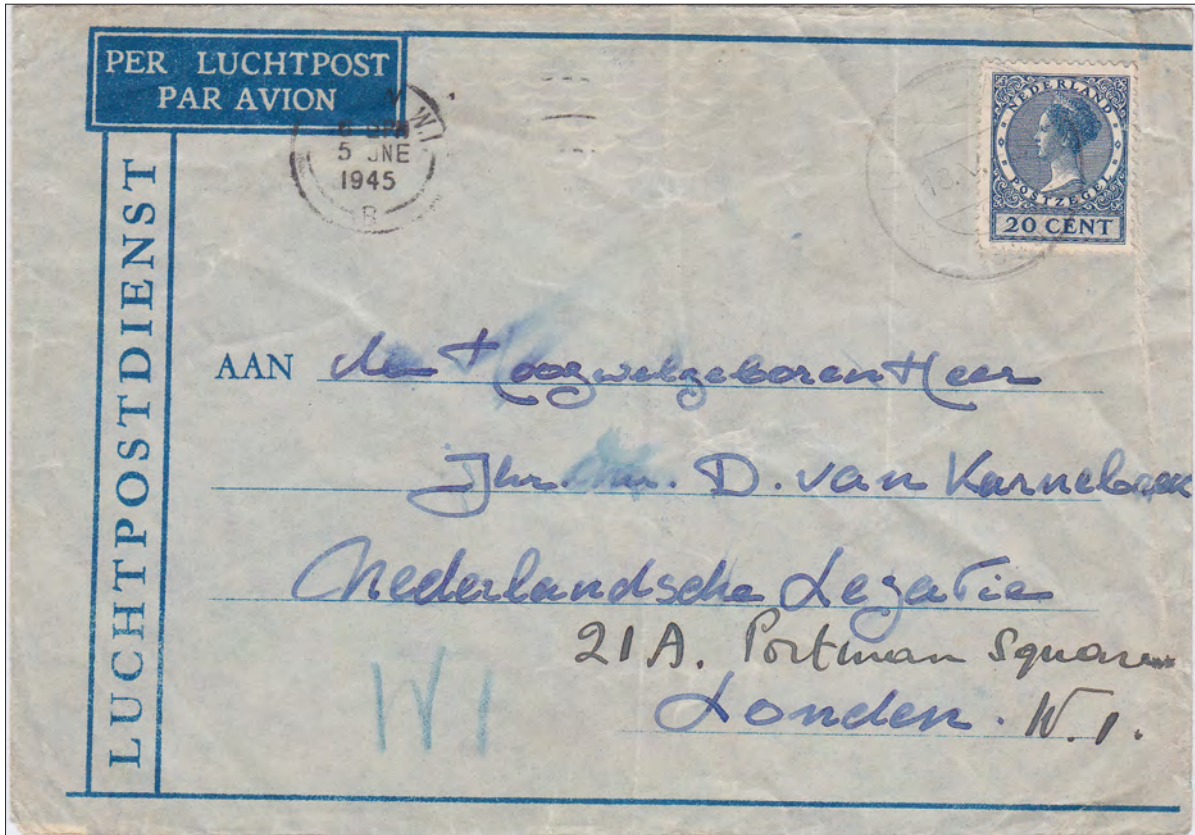 PER LUCHTPOST
PAR AVION
LUCHTPOSTDIENST
W.1
5 JNE
1945
B
18.V
NEDERLAND
POSTZEGEL
20 CENT
AAN den Hoogwelgeboren Heer
Jhr. mr. D. van Karnebeek
Nederlandsche Legatie
21A. Portman Square
Londen. W.1.
W1